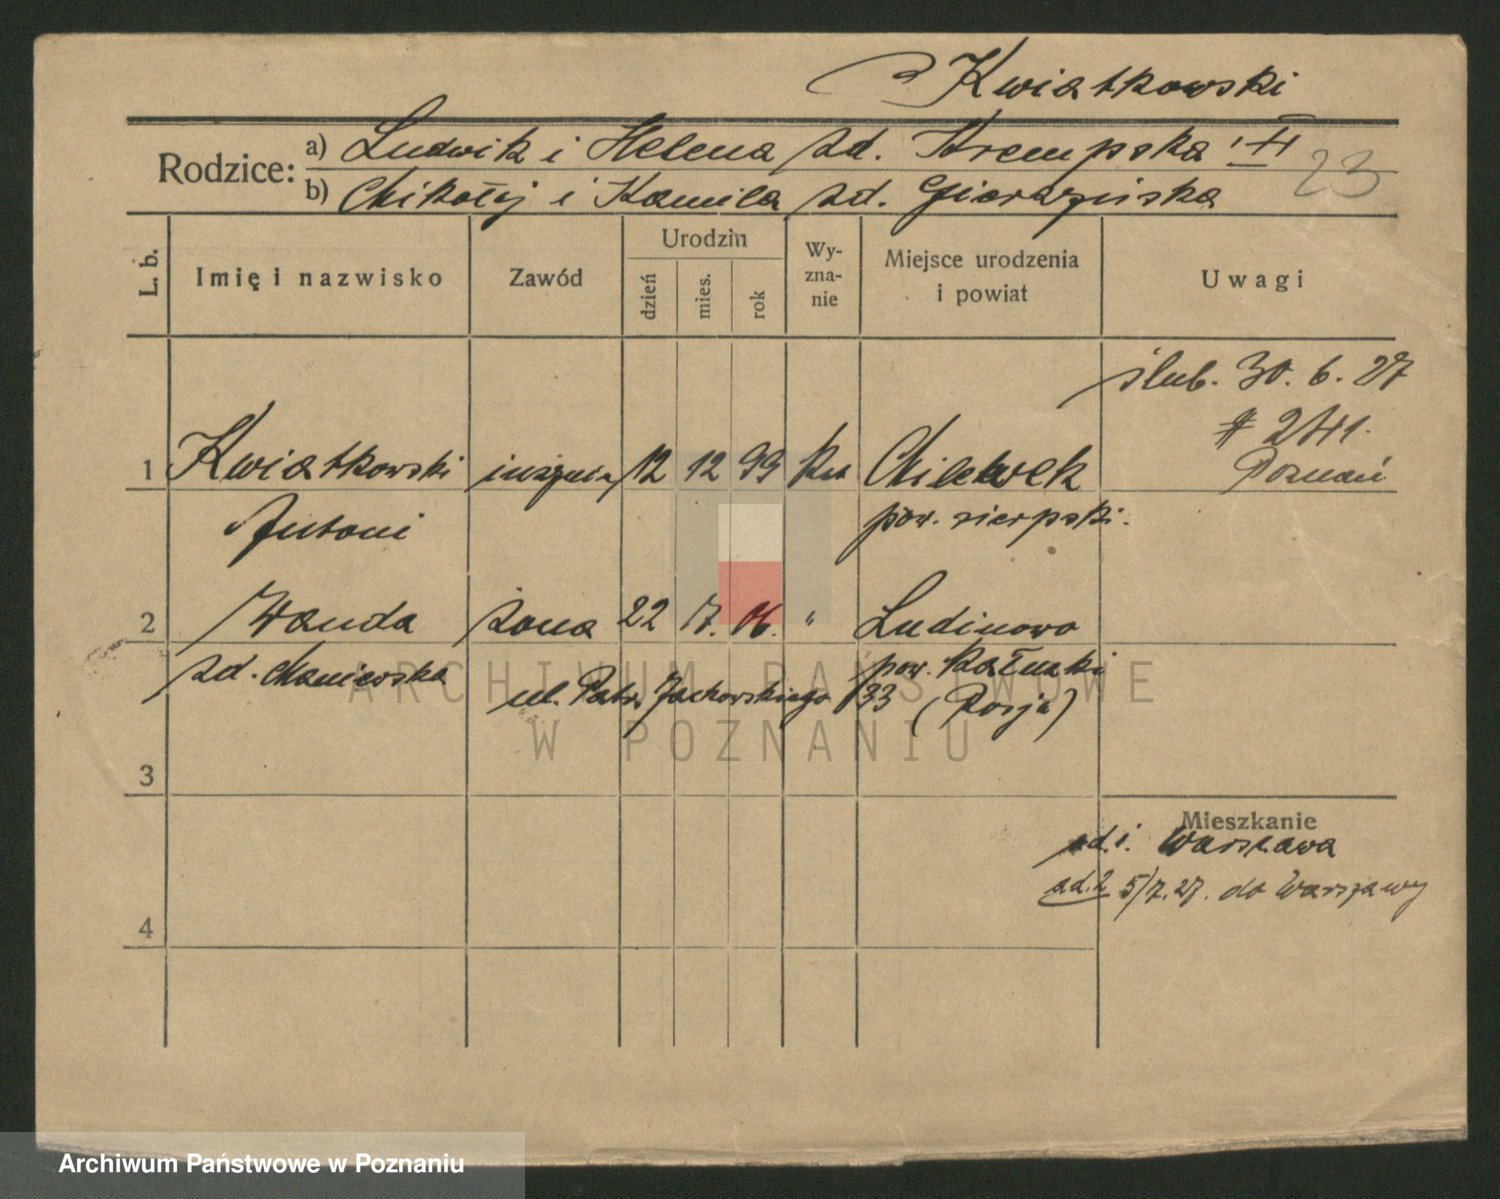 Kwiatkowski
Rodzice: a) Ludwik i Helena zd. Krempska
b) Mikołaj i Kamila zd.
23
L. b. Imię i nazwisko Zawód Urodzin dzień mies. rok Wyznanie Miejsce urodzenia i powiat Uwagi
ślub. 30. 6. 27
Poznań
1 Kwiatkowski 12 12 99
Antoni pow. sierpski.
2 Wanda żona 22 7. 06. " Ludinowo
zd. Maniewska pow. Kałuski
ul. Patr. Jackowskiego 33 (Rosja)
ARCHIWUM PAŃSTWOWE
W POZNANIU
3
Mieszkanie
ad. 1. Warszawa
ad. 2 5/7. 27. do Warszawy
4
Archiwum Państwowe w Poznaniu